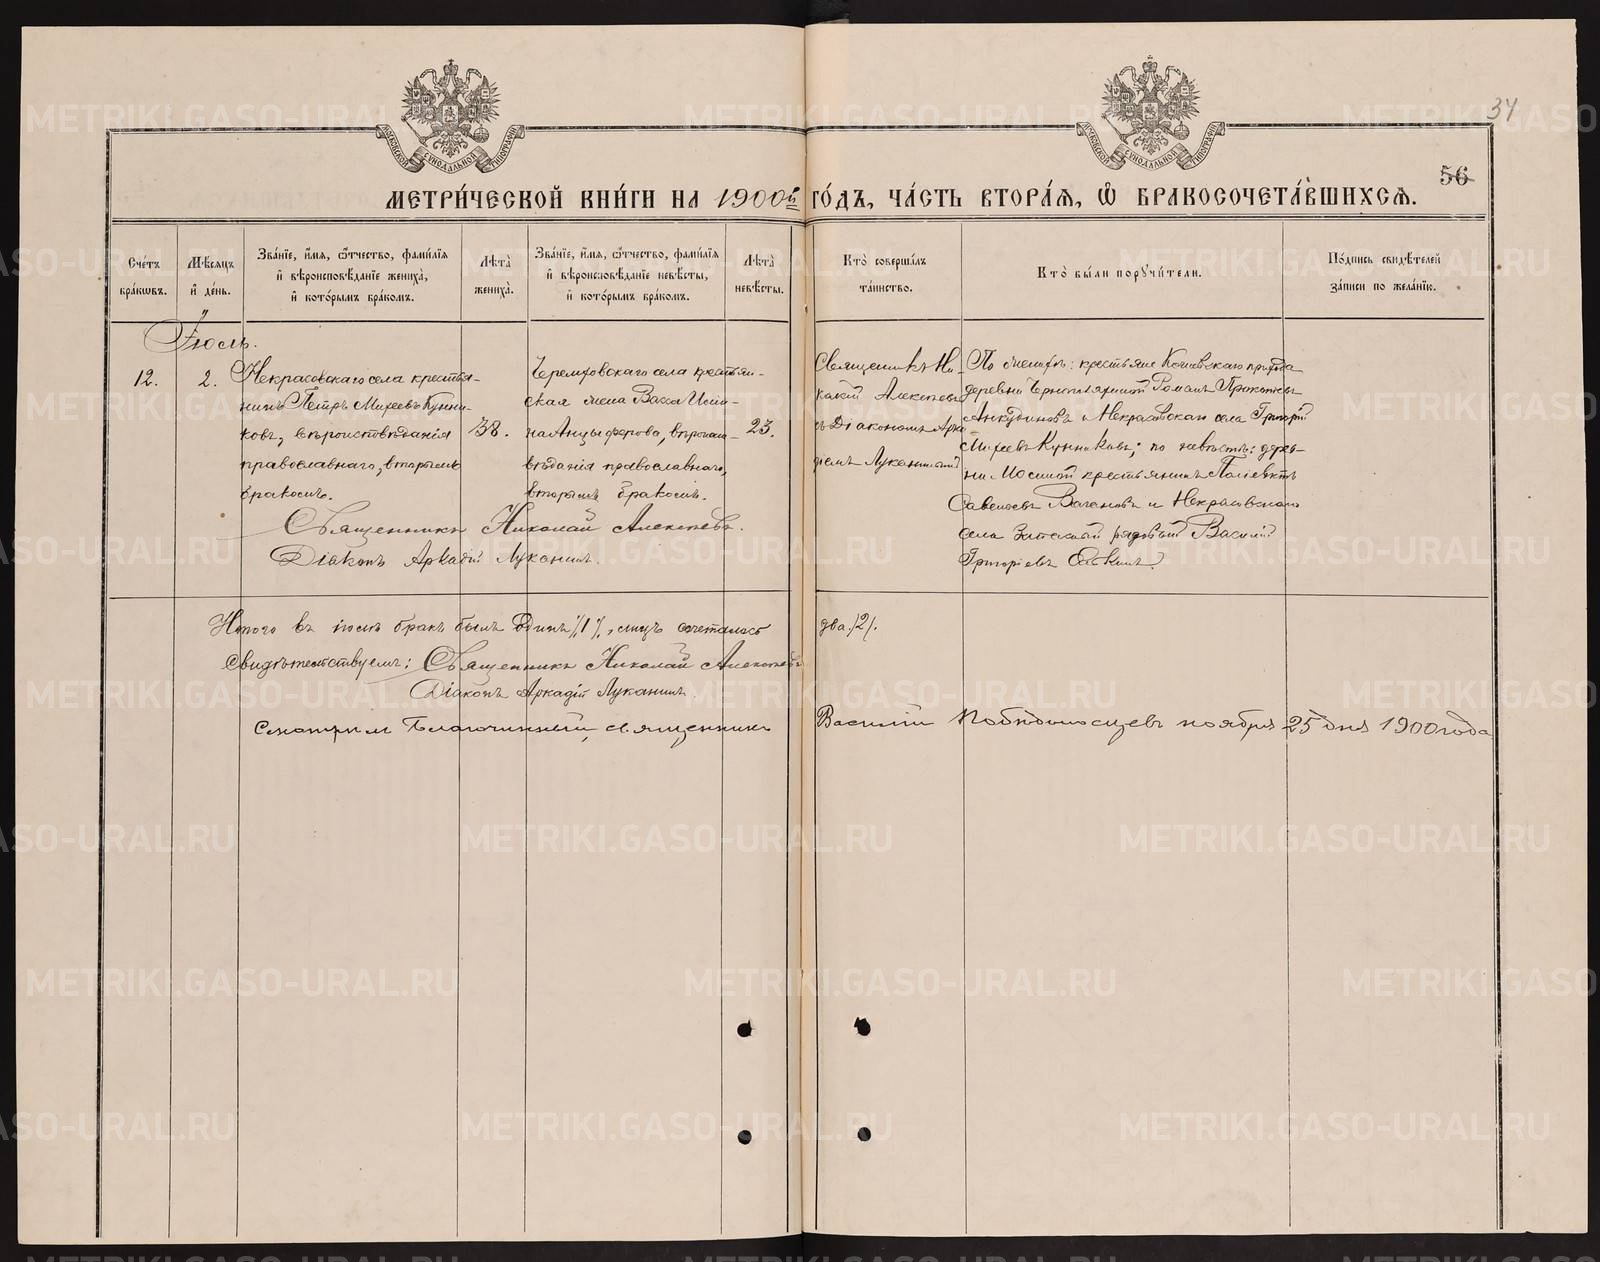 37
56
МОСКОВСКОЙ СИНОДАЛЬНОЙ ТИПОГРАФІИ
МОСКОВСКОЙ СИНОДАЛЬНОЙ ТИПОГРАФІИ
МЕТРИ́ЧЕСКОЙ КНИ́ГИ НА 1900й ГО́ДЪ, ЧА́СТЬ ВТОРА́Я, Ѡ БРАКОСОЧЕТА́ВШИХСЯ.
Сче́тъ
бра́кωвъ.
Мѣ́сяцъ
и҆ де́нь.
Зва́нїе, и҆́мя, ѻ҆́тчество, фами́лїя
и҆ вѣроисповѣ́данїе жениха̀,
и҆ кото́рымъ бра́комъ.
Лѣ́та
жениха̀.
Зва́нїе, и҆́мя, ѻ҆́тчество, фами́лїя
и҆ вѣроисповѣ́данїе невѣ́сты,
и҆ кото́рымъ бра́комъ.
Лѣ́та
невѣ́сты.
Кто̀ соверша́лъ
та́инство.
Кто̀ бы́ли порꙋчи́тели.
По́дпись свидѣ́телей
за́писи по жела́нїю.
Іюль.
12.
2.
Некрасовскаго села крестья-
нинъ Петръ Михеевъ Кунни-
ковъ, вѣроисповѣданія
православнаго, вторымъ
бракомъ.
38.
Черемховскаго села крестьян-
ская жена Васса
на Анцыферова, вѣроиспо-
вѣданія православнаго,
вторымъ бракомъ.
23.
Священникъ Ни-
колай Алексѣевъ
съ Діакономъ Арка-
діемъ Луканинымъ
По женихѣ: крестьяне прихода
деревни Романъ Прокопьевъ
Анкудиновъ и Некрасовскаго села Григорій
Михеевъ Кунниковъ; по невѣстѣ: дерев-
ни крестьянинъ Поліевктъ
Савельевъ Вагановъ и Некрасовскаго
села запасный рядовый Василій
Григорьевъ
Священникъ Николай Алексѣевъ.
Діаконъ Аркадій Луканинъ.
Итого въ іюлѣ бракъ былъ одинъ /1/, лицъ сочеталось два /2/.
Свидѣтельствуемъ: Священникъ Николай Алексѣевъ
Діаконъ Аркадій Луканинъ.
Смотрѣлъ Благочинный, священникъ Василій Побѣдоносцевъ ноября 25 дня 1900 года
METRIKI.GASO-URAL.RU